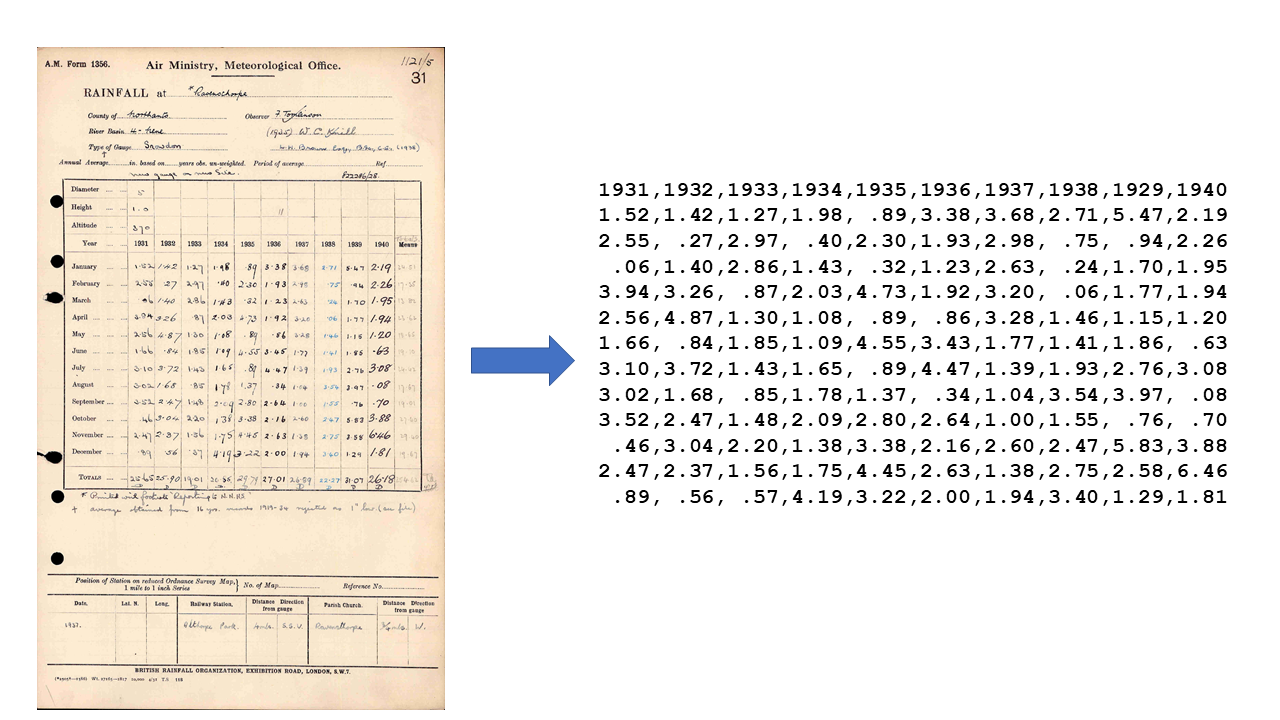 A.M. Form 1356.
Air Ministry, Meteorological Office.
1121/5
31
RAINFALL at "Ravensthorpe
County of Northants Observer F. Tomlinson
River Basin 4 - Nene (1935) W. C. Knill
Type of Gauge Snowdon
Annual Average in. based on years obs. un-weighted. Period of average Ref.
new gauge on new Site.
Diameter 5
Height 1.0 11
Altitude 370
Year 1931 1932 1933 1934 1935 1936 1937 1938 1939 1940 Means
January 1.52 1.42 1.27 1.98 .89 3.38 3.68 2.71 5.47 2.19
February 2.55 .27 2.97 .40 2.30 1.93 2.98 .75 .94 2.26
March .06 1.40 2.86 1.43 .32 1.23 2.63 .24 1.70 1.95
April 3.94 3.26 .87 2.03 4.73 1.92 3.20 .06 1.77 1.94
May 2.56 4.87 1.30 1.08 .89 .86 3.28 1.46 1.15 1.20
June 1.66 .84 1.85 1.09 4.55 3.45 1.77 1.41 1.86 .63
July 3.10 3.72 1.43 1.65 .89 4.47 1.39 1.93 2.76 3.08
August 3.02 1.68 .85 1.78 1.37 .34 1.04 3.54 .08
September 3.52 2.47 1.48 2.09 2.80 2.64 1.00 1.55 .76 .70
October .46 3.04 2.20 1.38 3.38 2.16 2.60 2.47 5.83 3.88
November 2.47 2.37 1.56 1.75 4.45 2.63 1.38 2.75 2.58 6.46
December .89 .56 .57 4.19 3.22 2.00 1.94 3.40 1.29 1.81
TOTALS 25.65 25.90 19.01 29.79 27.01 26.89 22.27 31.07 26.18
Position of Station on reduced Ordnance Survey Map, No. of Map Reference No.
1 mile to 1 inch Series
Date. Lat. N. Long. Railway Station. Distance Direction from gauge Parish Church. Distance Direction from gauge
1937. Althorpe Park. 4mls S.S.W. Ravensthorpe ¼mls W.
BRITISH RAINFALL ORGANIZATION, EXHIBITION ROAD, LONDON, S.W.7.
1931,1932,1933,1934,1935,1936,1937,1938,1929,1940
1.52,1.42,1.27,1.98, .89,3.38,3.68,2.71,5.47,2.19
2.55, .27,2.97, .40,2.30,1.93,2.98, .75, .94,2.26
.06,1.40,2.86,1.43, .32,1.23,2.63, .24,1.70,1.95
3.94,3.26, .87,2.03,4.73,1.92,3.20, .06,1.77,1.94
2.56,4.87,1.30,1.08, .89, .86,3.28,1.46,1.15,1.20
1.66, .84,1.85,1.09,4.55,3.43,1.77,1.41,1.86, .63
3.10,3.72,1.43,1.65, .89,4.47,1.39,1.93,2.76,3.08
3.02,1.68, .85,1.78,1.37, .34,1.04,3.54,3.97, .08
3.52,2.47,1.48,2.09,2.80,2.64,1.00,1.55, .76, .70
.46,3.04,2.20,1.38,3.38,2.16,2.60,2.47,5.83,3.88
2.47,2.37,1.56,1.75,4.45,2.63,1.38,2.75,2.58,6.46
.89, .56, .57,4.19,3.22,2.00,1.94,3.40,1.29,1.81